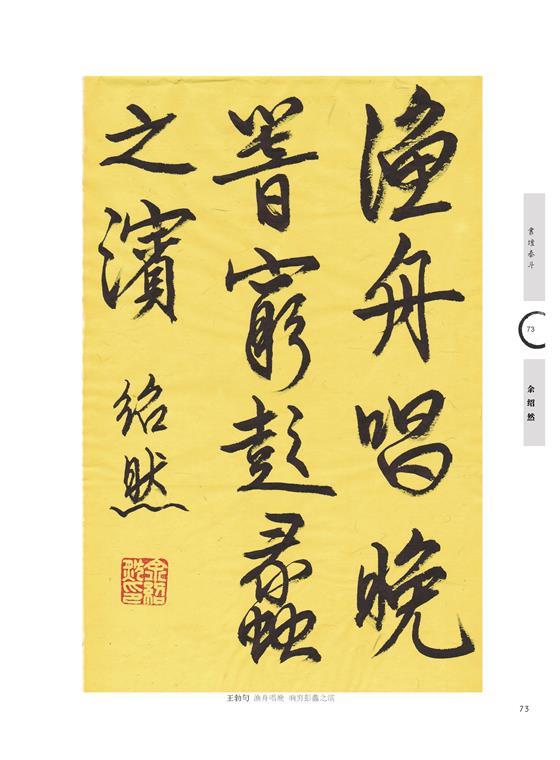 漁舟唱晚
響窮彭蠡
之濱
紹然
余紹然印
王勃句 渔舟唱晚 响穷彭蠡之滨
書壇泰斗
73
余绍然
73